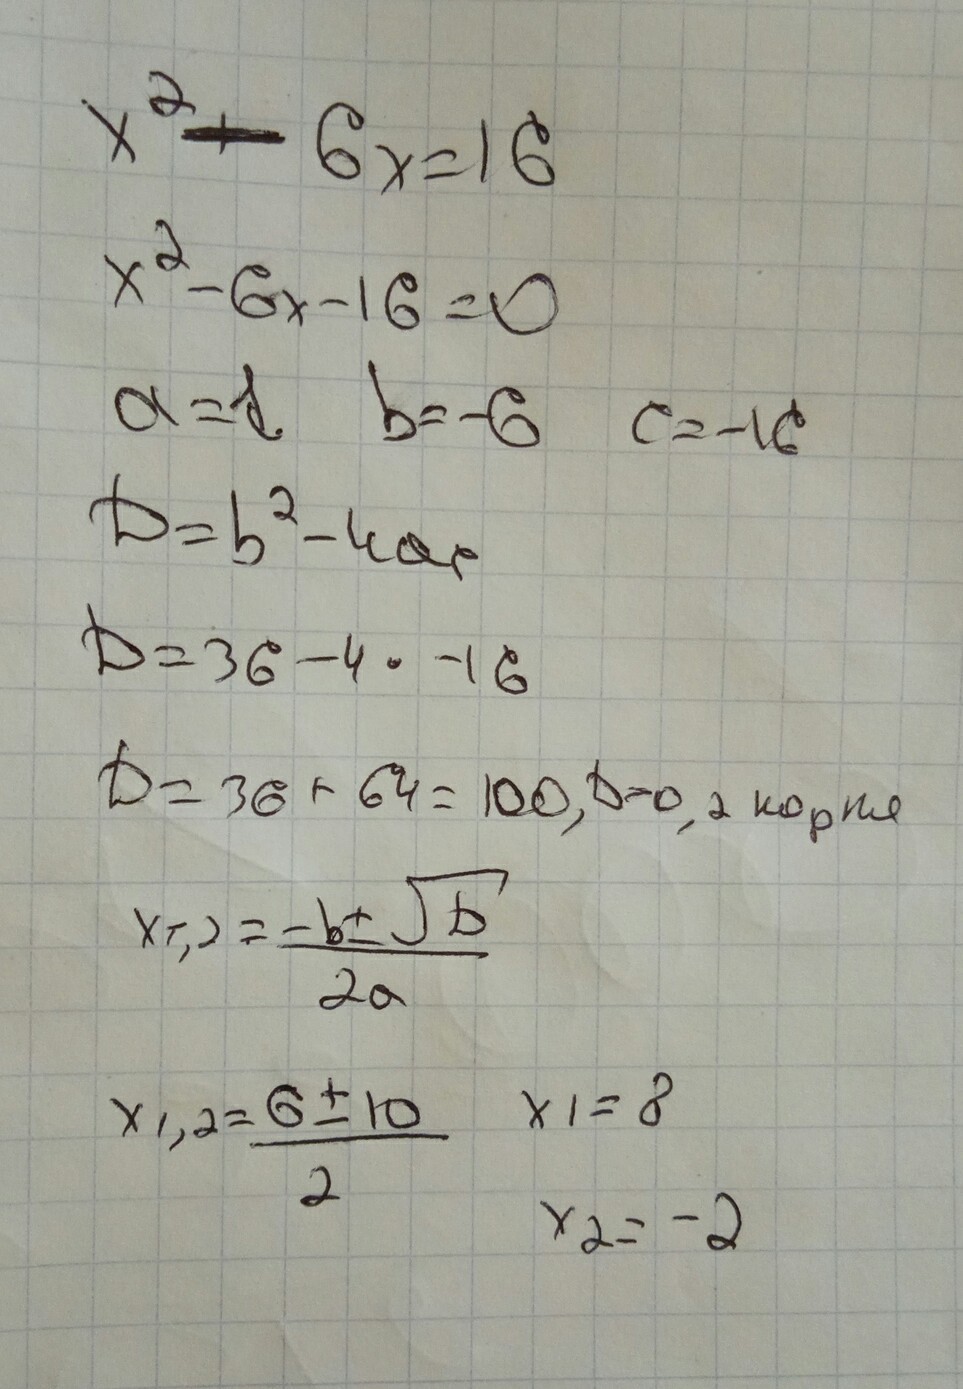 x² - 6x=16
x²-6x-16=0
a=1 b=-6 c=-16
D=b²-4ac
D=36-4· -16
D=36+64=100, D=0, 2 корня
x1,2=-b±√D
2a
x1,2=6±10 x1=8
2
x2=-2